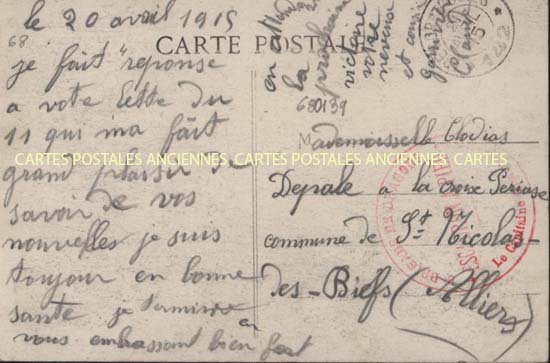 le 20 avril 1915
68
CARTE POSTALE
je fait reponse
a votre lettre du
11 qui ma fait
grand plaisir de
savoir de vos
nouvelles je suis
toujour en bonne
sante je termine en
vous embrassant bien fort
en attendant
la prochaine
victoire
votre
neveu
et cousin
680139
Mademoisselle Clodias
Depale a la croix Periase
commune de St Nicolas-
des-Biefs (Alliers)
Le Capitaine
CARTES POSTALES ANCIENNES CARTES POSTALES ANCIENNES CARTES